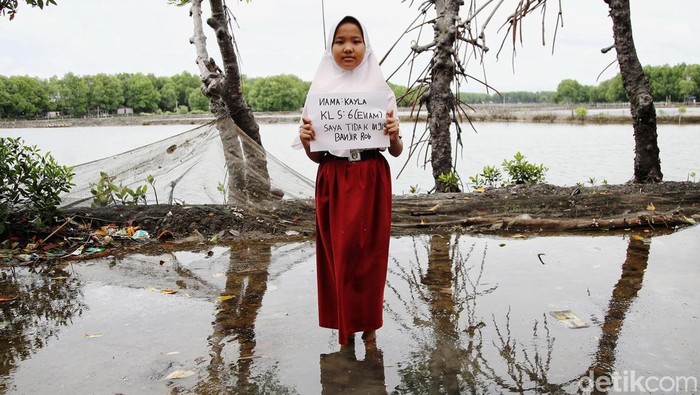 NAMA: KAYLA
KLS: 6 (ENAM)
SAYA TIDAK INGIN
BANJIR ROB
detikcom